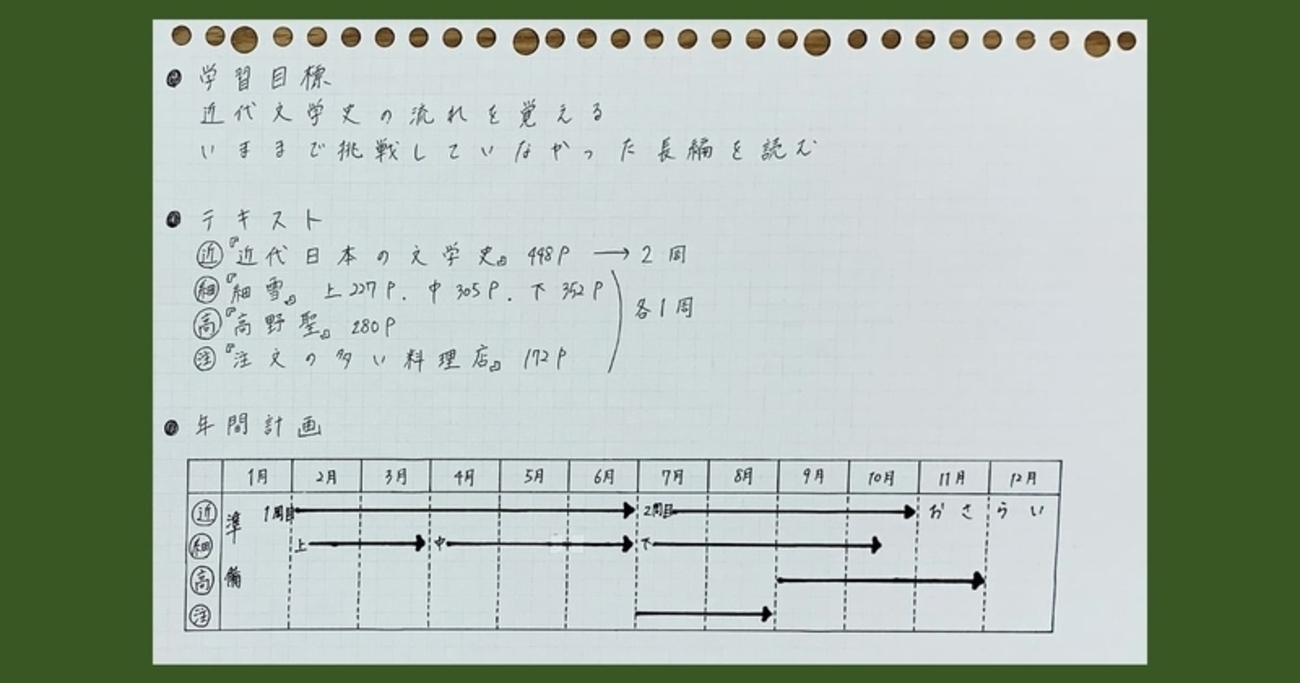 学習目標
近代文学史の流れを覚える
いままで挑戦していなかった長編を読む
テキスト
近 『近代日本の文学史』 448P → 2周
細 『細雪』 上227P. 中305P. 下352P
高 『高野聖』 280P
注 『注文の多い料理店』 172P
各1周
年間計画
1月 2月 3月 4月 5月 6月 7月 8月 9月 10月 11月 12月
近 1周目 2周目 おさらい
細 上 中 下
高
注
準備